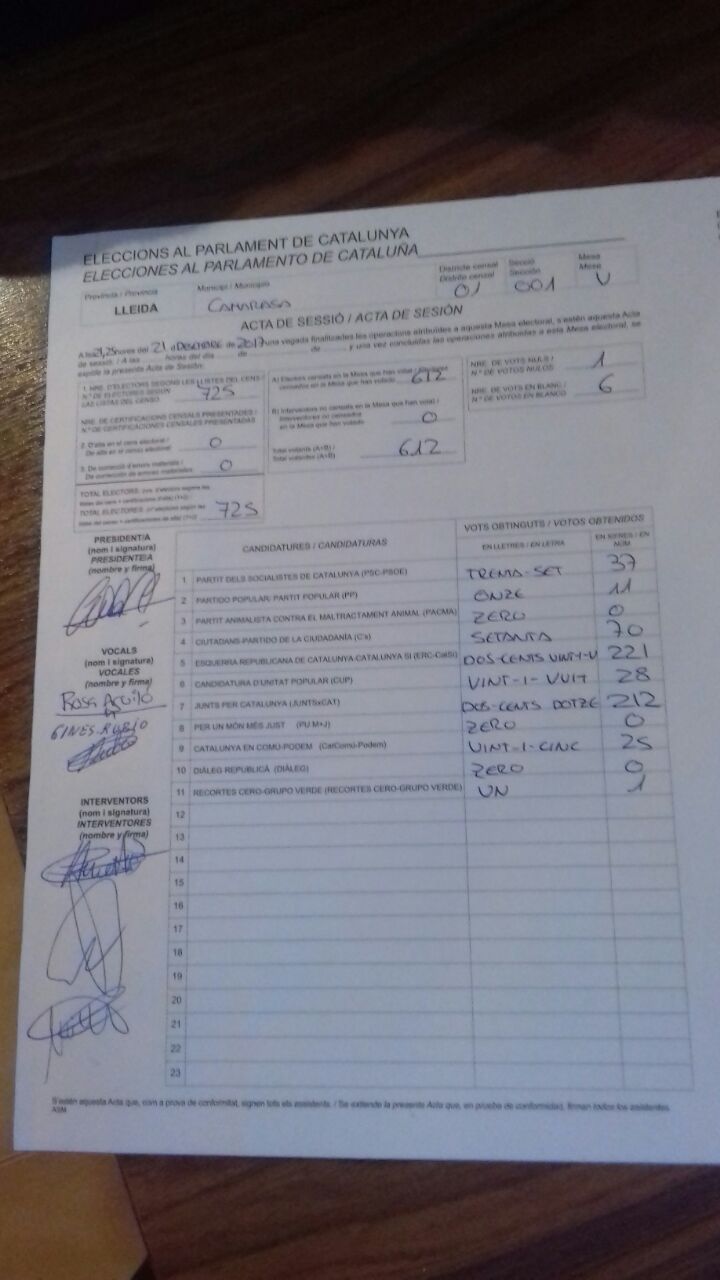 ELECCIONS AL PARLAMENT DE CATALUNYA
ELECCIONES AL PARLAMENTO DE CATALUÑA
Província / Provincia
LLEIDA
Municipi / Municipio
CAMARASA
Districte censal
Distrito censal
01
Secció
Sección
001
Mesa
Mesa
U
ACTA DE SESSIÓ / ACTA DE SESIÓN
A les 21,25 hores del 21 d DESEMBRE de 2017 una vegada finalitzades les operacions atribuïdes a aquesta Mesa electoral, s'estén aquesta Acta
de sessió. / A las horas del día de de y una vez concluidas las operaciones atribuidas a esta Mesa electoral, se
expide la presente Acta de Sesión.
1. NRE. D'ELECTORS SEGONS LES LLISTES DEL CENS /
N.º DE ELECTORES SEGÚN
LAS LISTAS DEL CENSO
725
NRE. DE CERTIFICACIONS CENSALS PRESENTADES /
N.º DE CERTIFICACIONES CENSALES PRESENTADAS
2. D'alta en el cens electoral /
De alta en el censo electoral
0
3. De correcció d'errors materials /
De corrección de errores materiales
0
TOTAL ELECTORS:
TOTAL ELECTORES:
725
A) Electors censats en la Mesa que han votat / Electores
censados en la Mesa que han votado
612
B) Interventors no censats en la Mesa que han votat /
Interventores no censados
en la Mesa que han votado
0
Total votants (A+B) /
Total votantes (A+B)
612
NRE. DE VOTS NULS /
N.º DE VOTOS NULOS
1
NRE. DE VOTS EN BLANC /
N.º DE VOTOS EN BLANCO
6
PRESIDENT/A
(nom i signatura)
PRESIDENTE/A
(nombre y firma)
VOCALS
(nom i signatura)
VOCALES
(nombre y firma)
ROSA AGUILÓ
GINES RUBIO
INTERVENTORS
(nom i signatura)
INTERVENTORES
(nombre y firma)
CANDIDATURES / CANDIDATURAS
VOTS OBTINGUTS / VOTOS OBTENIDOS
EN LLETRES / EN LETRA
EN XIFRES / EN NÚM
1 PARTIT DELS SOCIALISTES DE CATALUNYA (PSC-PSOE) TRENTA-SET 37
2 PARTIDO POPULAR/ PARTIT POPULAR (PP) ONZE 11
3 PARTIT ANIMALISTA CONTRA EL MALTRACTAMENT ANIMAL (PACMA) ZERO 0
4 CIUTADANS-PARTIDO DE LA CIUDADANÍA (C's) SETANTA 70
5 ESQUERRA REPUBLICANA DE CATALUNYA-CATALUNYA SÍ (ERC-CatSí) DOS-CENTS VINT-I-U 221
6 CANDIDATURA D'UNITAT POPULAR (CUP) VINT-I-VUIT 28
7 JUNTS PER CATALUNYA (JUNTSxCAT) DOS-CENTS DOTZE 212
8 PER UN MÓN MÉS JUST (PUM+J) ZERO 0
9 CATALUNYA EN COMÚ-PODEM (CatComú-Podem) VINT-I-CINC 25
10 DIÀLEG REPUBLICÀ (DIÀLEG) ZERO 0
11 RECORTES CERO-GRUPO VERDE (RECORTES CERO-GRUPO VERDE) UN 1
12
13
14
15
16
17
18
19
20
21
22
23
S'estén aquesta Acta que, com a prova de conformitat, signen tots els assistents. / Se extiende la presente Acta que, en prueba de conformidad, firman todos los asistentes.